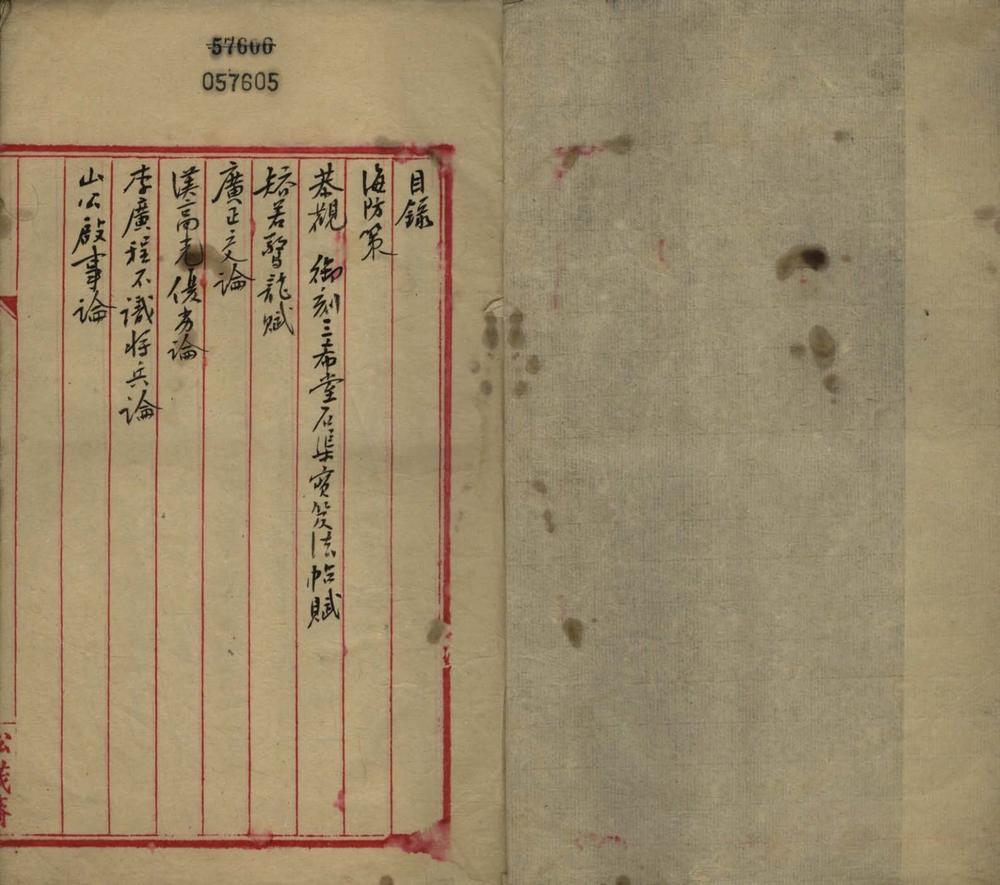 57606
057605
目錄
海防策
恭觀 御刻三希堂石渠寶笈法帖賦
矯若驚龍賦
廣正交論
漢高光優劣論
李廣程不識將兵論
山公啟事論
松茂齋